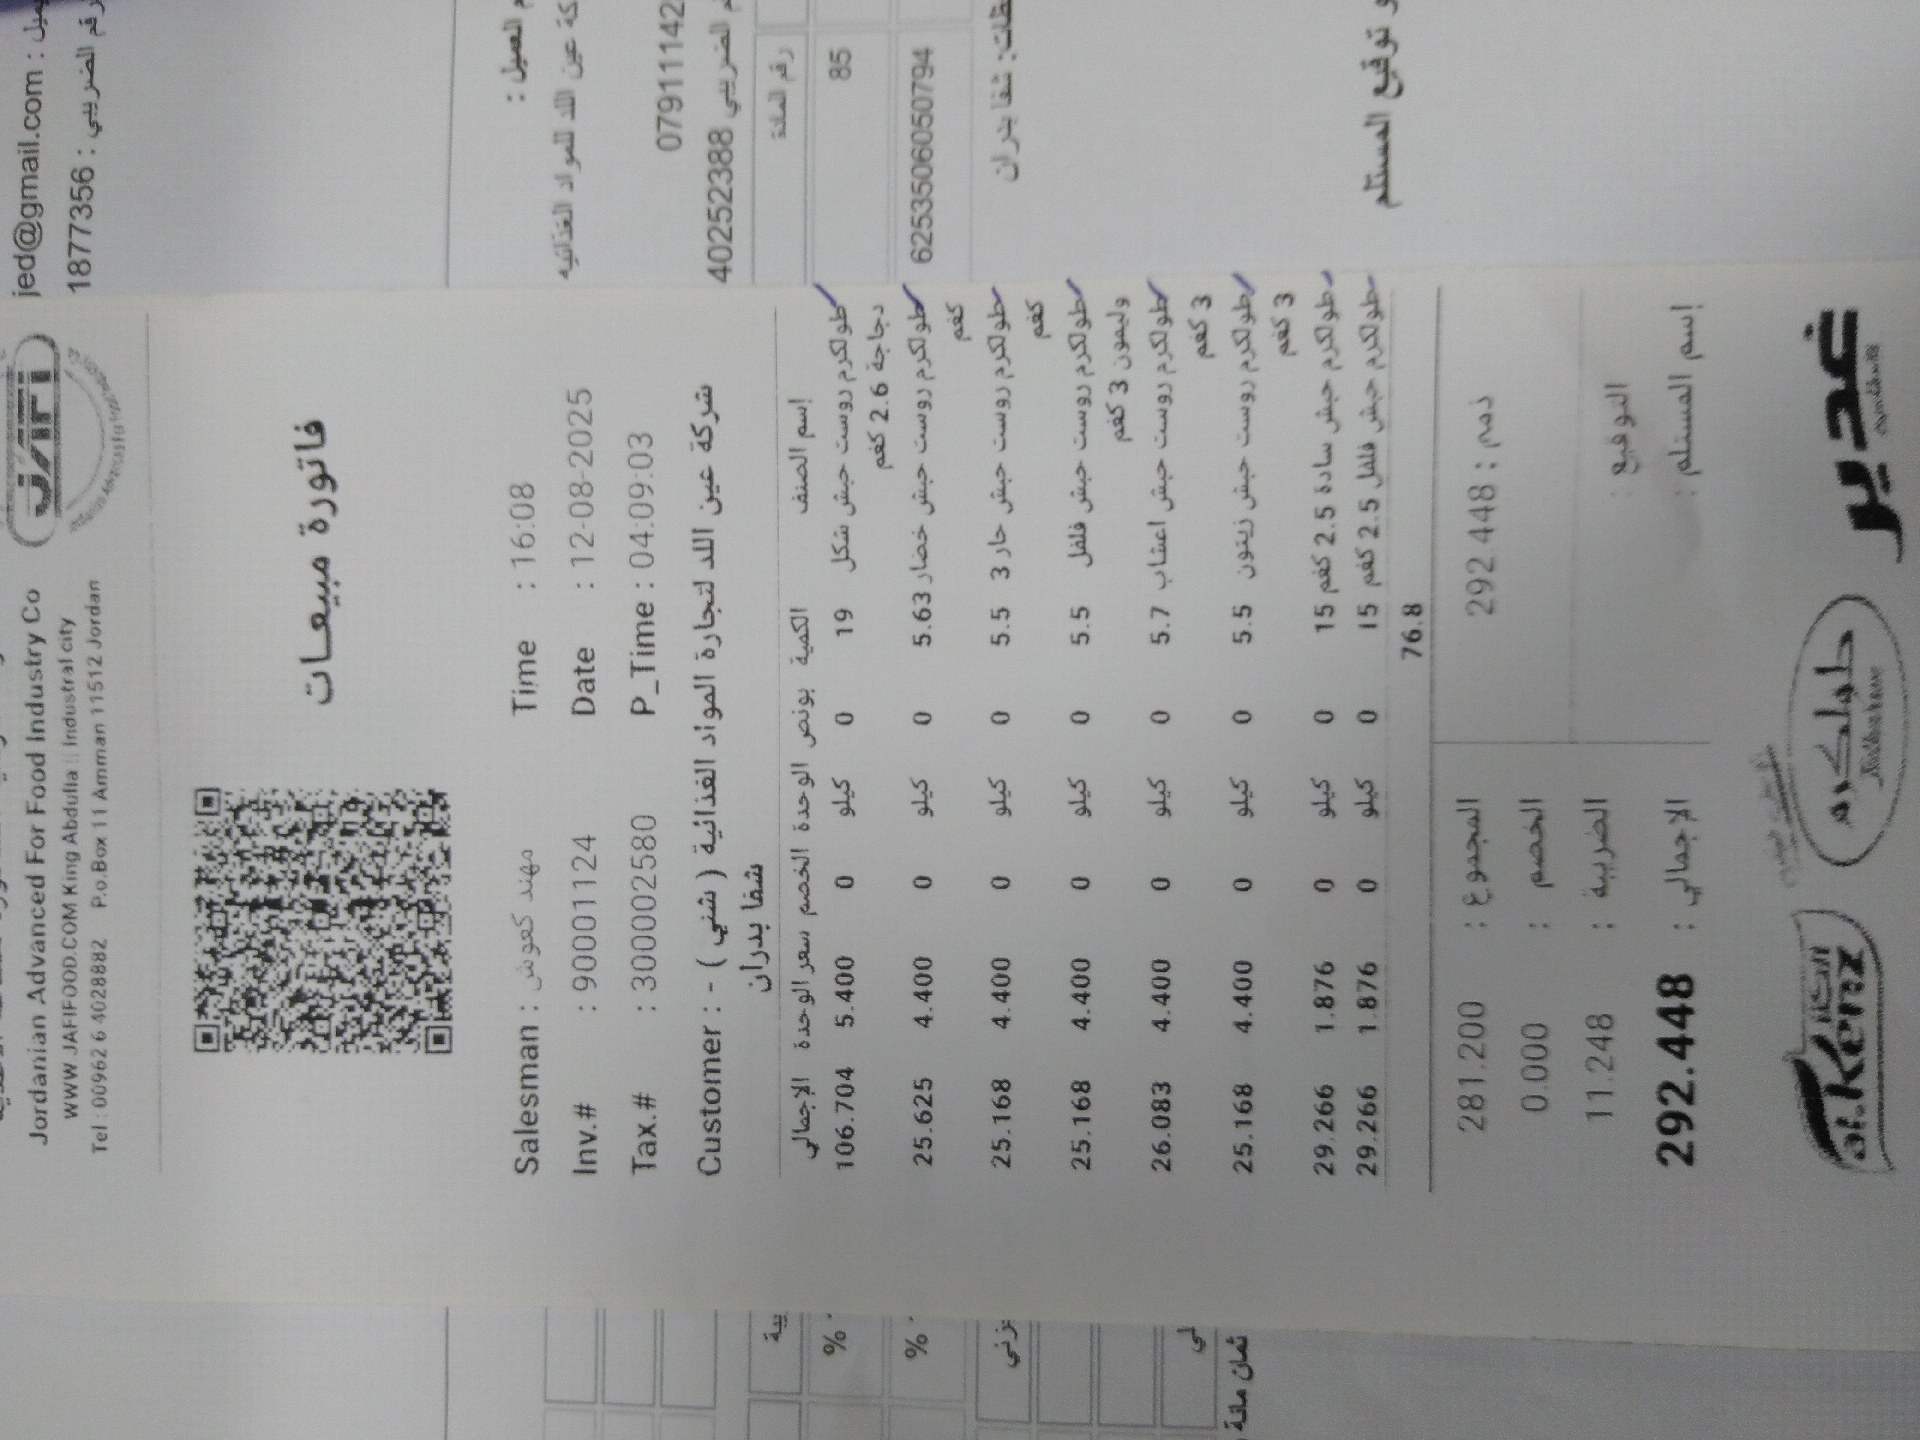 jed@gmail.com :
رقم الضريبي : 18777356
JAFI
Jordanian Advanced For Food Industry Co
WWW.JAFIFOOD.COM King Abdulla II Industral city
Tel : 00962 6 4028882 P.o.Box 11 Amman 11512 Jordan
فاتورة مبيعات
Salesman : مهند كعوش Time : 16:08
Inv.# : 90001124 Date : 12-08-2025
Tax.# : 300002580 P_Time : 04:09:03
Customer : - ( شني ) شركة عين اللد لتجارة المواد الغذائية
شفا بدران
إسم الصنف الكمية بونص الوحدة الخصم سعر الوحدة الإجمالي
طولكرم روست حبش شكل 19 0 كيلو 0 5.400 106.704
دجاجة 2.6 كغم
طولكرم روست حبش خضار 5.63 0 كيلو 0 4.400 25.625
كغم
طولكرم روست حبش حار 3 5.5 0 كيلو 0 4.400 25.168
كغم
طولكرم روست حبش فلفل 5.5 0 كيلو 0 4.400 25.168
وليمون 3 كغم
طولكرم روست حبش اعشاب 5.7 0 كيلو 0 4.400 26.083
3 كغم
طولكرم روست حبش زيتون 5.5 0 كيلو 0 4.400 25.168
3 كغم
طولكرم حبش سادة 2.5 كغم 15 0 كيلو 0 1.876 29.266
طولكرم حبش فلفل 2.5 كغم 15 0 كيلو 0 1.876 29.266
76.8
المجموع : 281.200 ذمم : 292.448
الخصم : 0.000
الضريبة : 11.248 التوقيع :
الإجمالي : 292.448 إسم المستلم :
الكنز
al.kenz
طولكرم
Tulkarem
غدير
العميل :
كة عين اللد للمواد الغذائيه
079111142
الضريبي 402522388
رقم المادة
85
6253506050794
شفا بدران
و توقيع المستلم
%
%
ثمان مائة